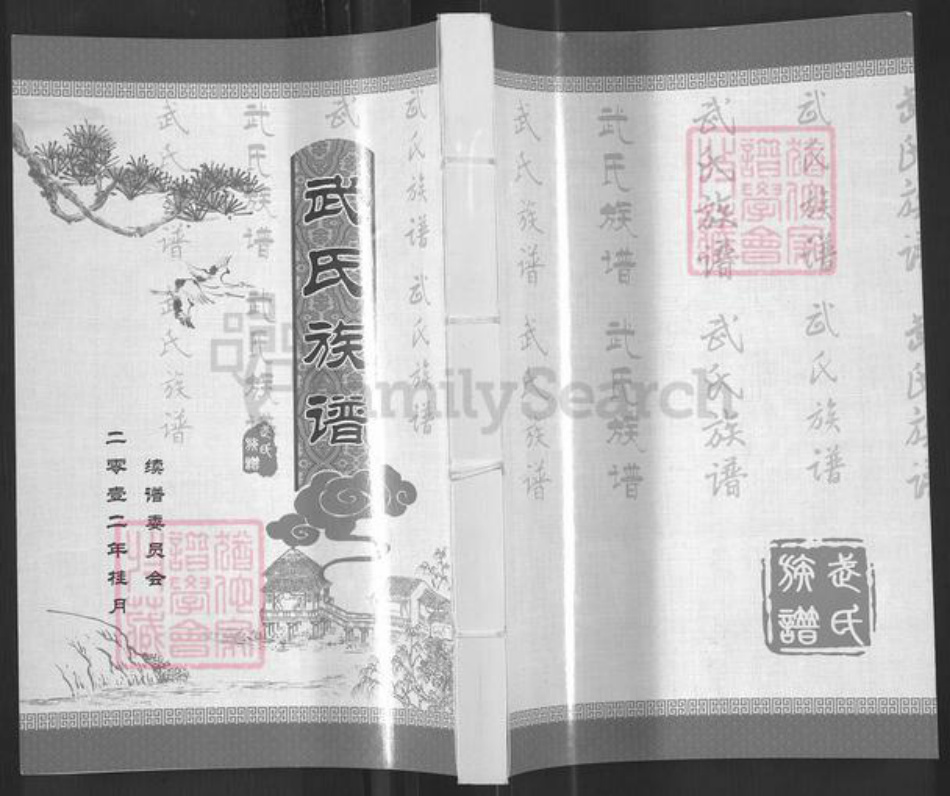 武氏族谱
武氏
族谱
续谱委员会
二零壹二年桂月
武氏族谱 武氏族谱
武氏族谱 武氏族谱
武氏族谱 武氏族谱
武氏族谱 武氏族谱
武氏族谱 武氏族谱
武氏族谱 武氏族谱
武氏族谱 武氏族谱
武氏
族譜
譜學會
FamilySearch